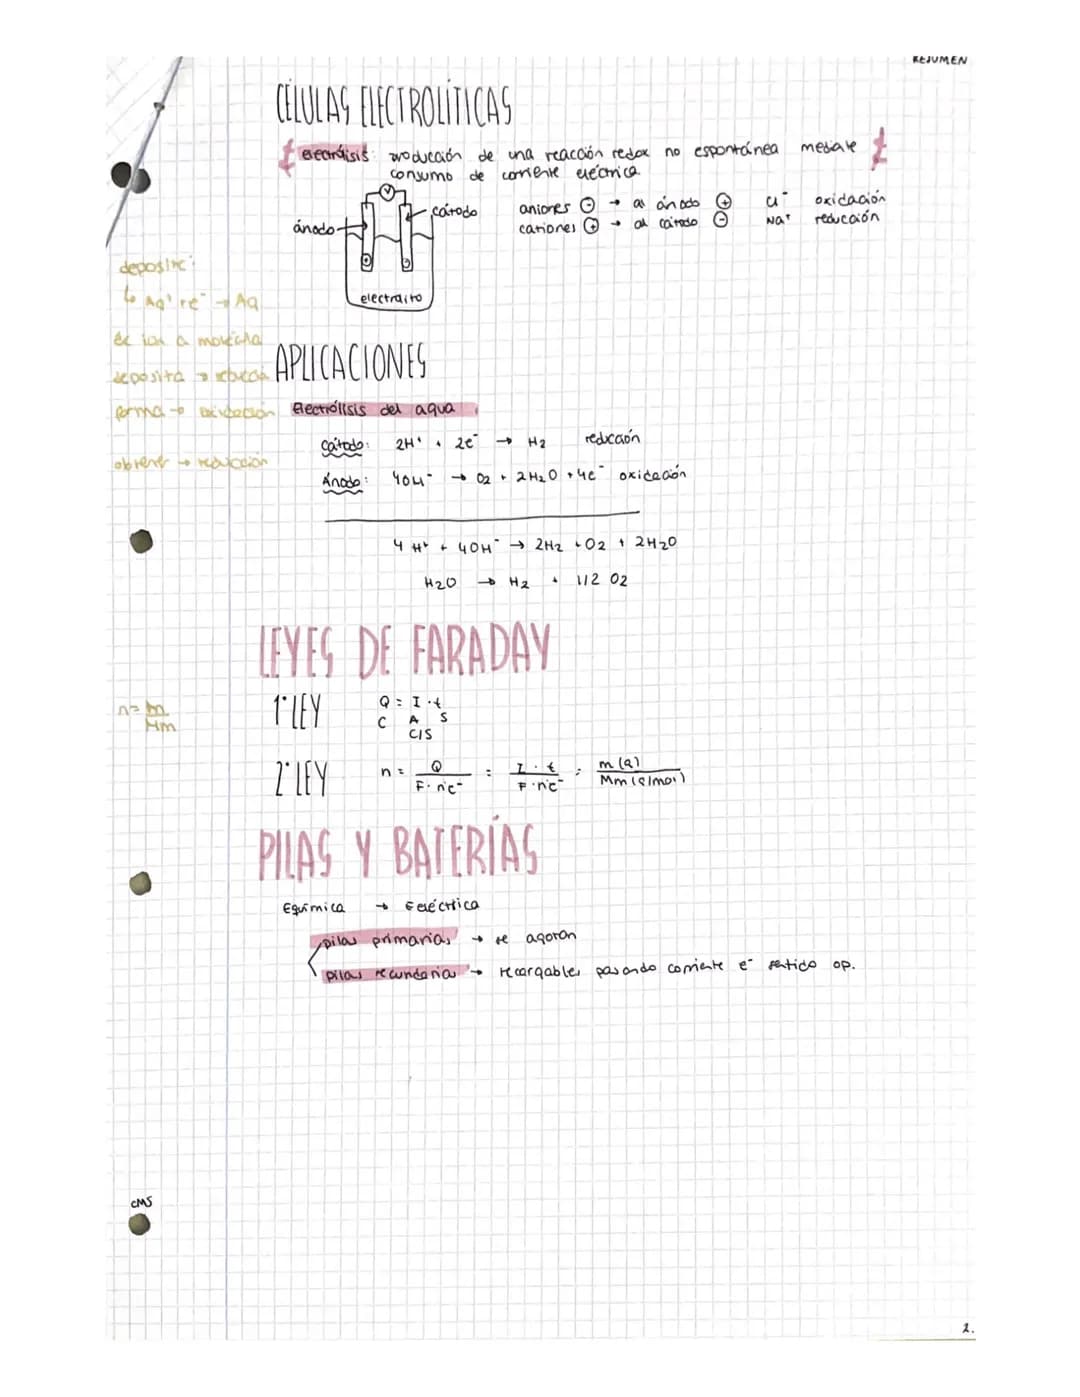 RESUMEN
CÉLULAS ELECTROLÍTICAS
electrólisis: producción de una reacción redox no espontánea mediante
consumo de corriente eléctrica.
V
ánodo
cátodo
electrolito
aniones ⊖ → al ánodo ⊕ Cl⁻ oxidación
cationes ⊕ → al cátodo ⊖ Na⁺ reducción
deposite:
↳ Ag⁺ + e⁻ → Ag
de ion a molécula
deposita → reducción
forma → oxidación
obtener → reducción
APLICACIONES
Electrólisis del agua
Cátodo: 2H⁺ + 2e⁻ → H2 reducción
Ánodo: 4OH⁻ → O2 + 2H2O + 4e⁻ oxidación
4H⁺ + 4OH⁻ → 2H2 + O2 + 2H2O
H2O → H2 + 1/2 O2
LEYES DE FARADAY
n = m
Mm
1ª LEY Q = I · t
C A S
C/S
2ª LEY n = Q / F · nºe⁻ = I · t / F · nºe⁻ = m (g) / Mm (g/mol)
PILAS Y BATERÍAS
Equímica → Eeléctrica
pilas primarias → se agotan
pilas secundarias → recargables pasando corriente e⁻ sentido op.
CMS
2.